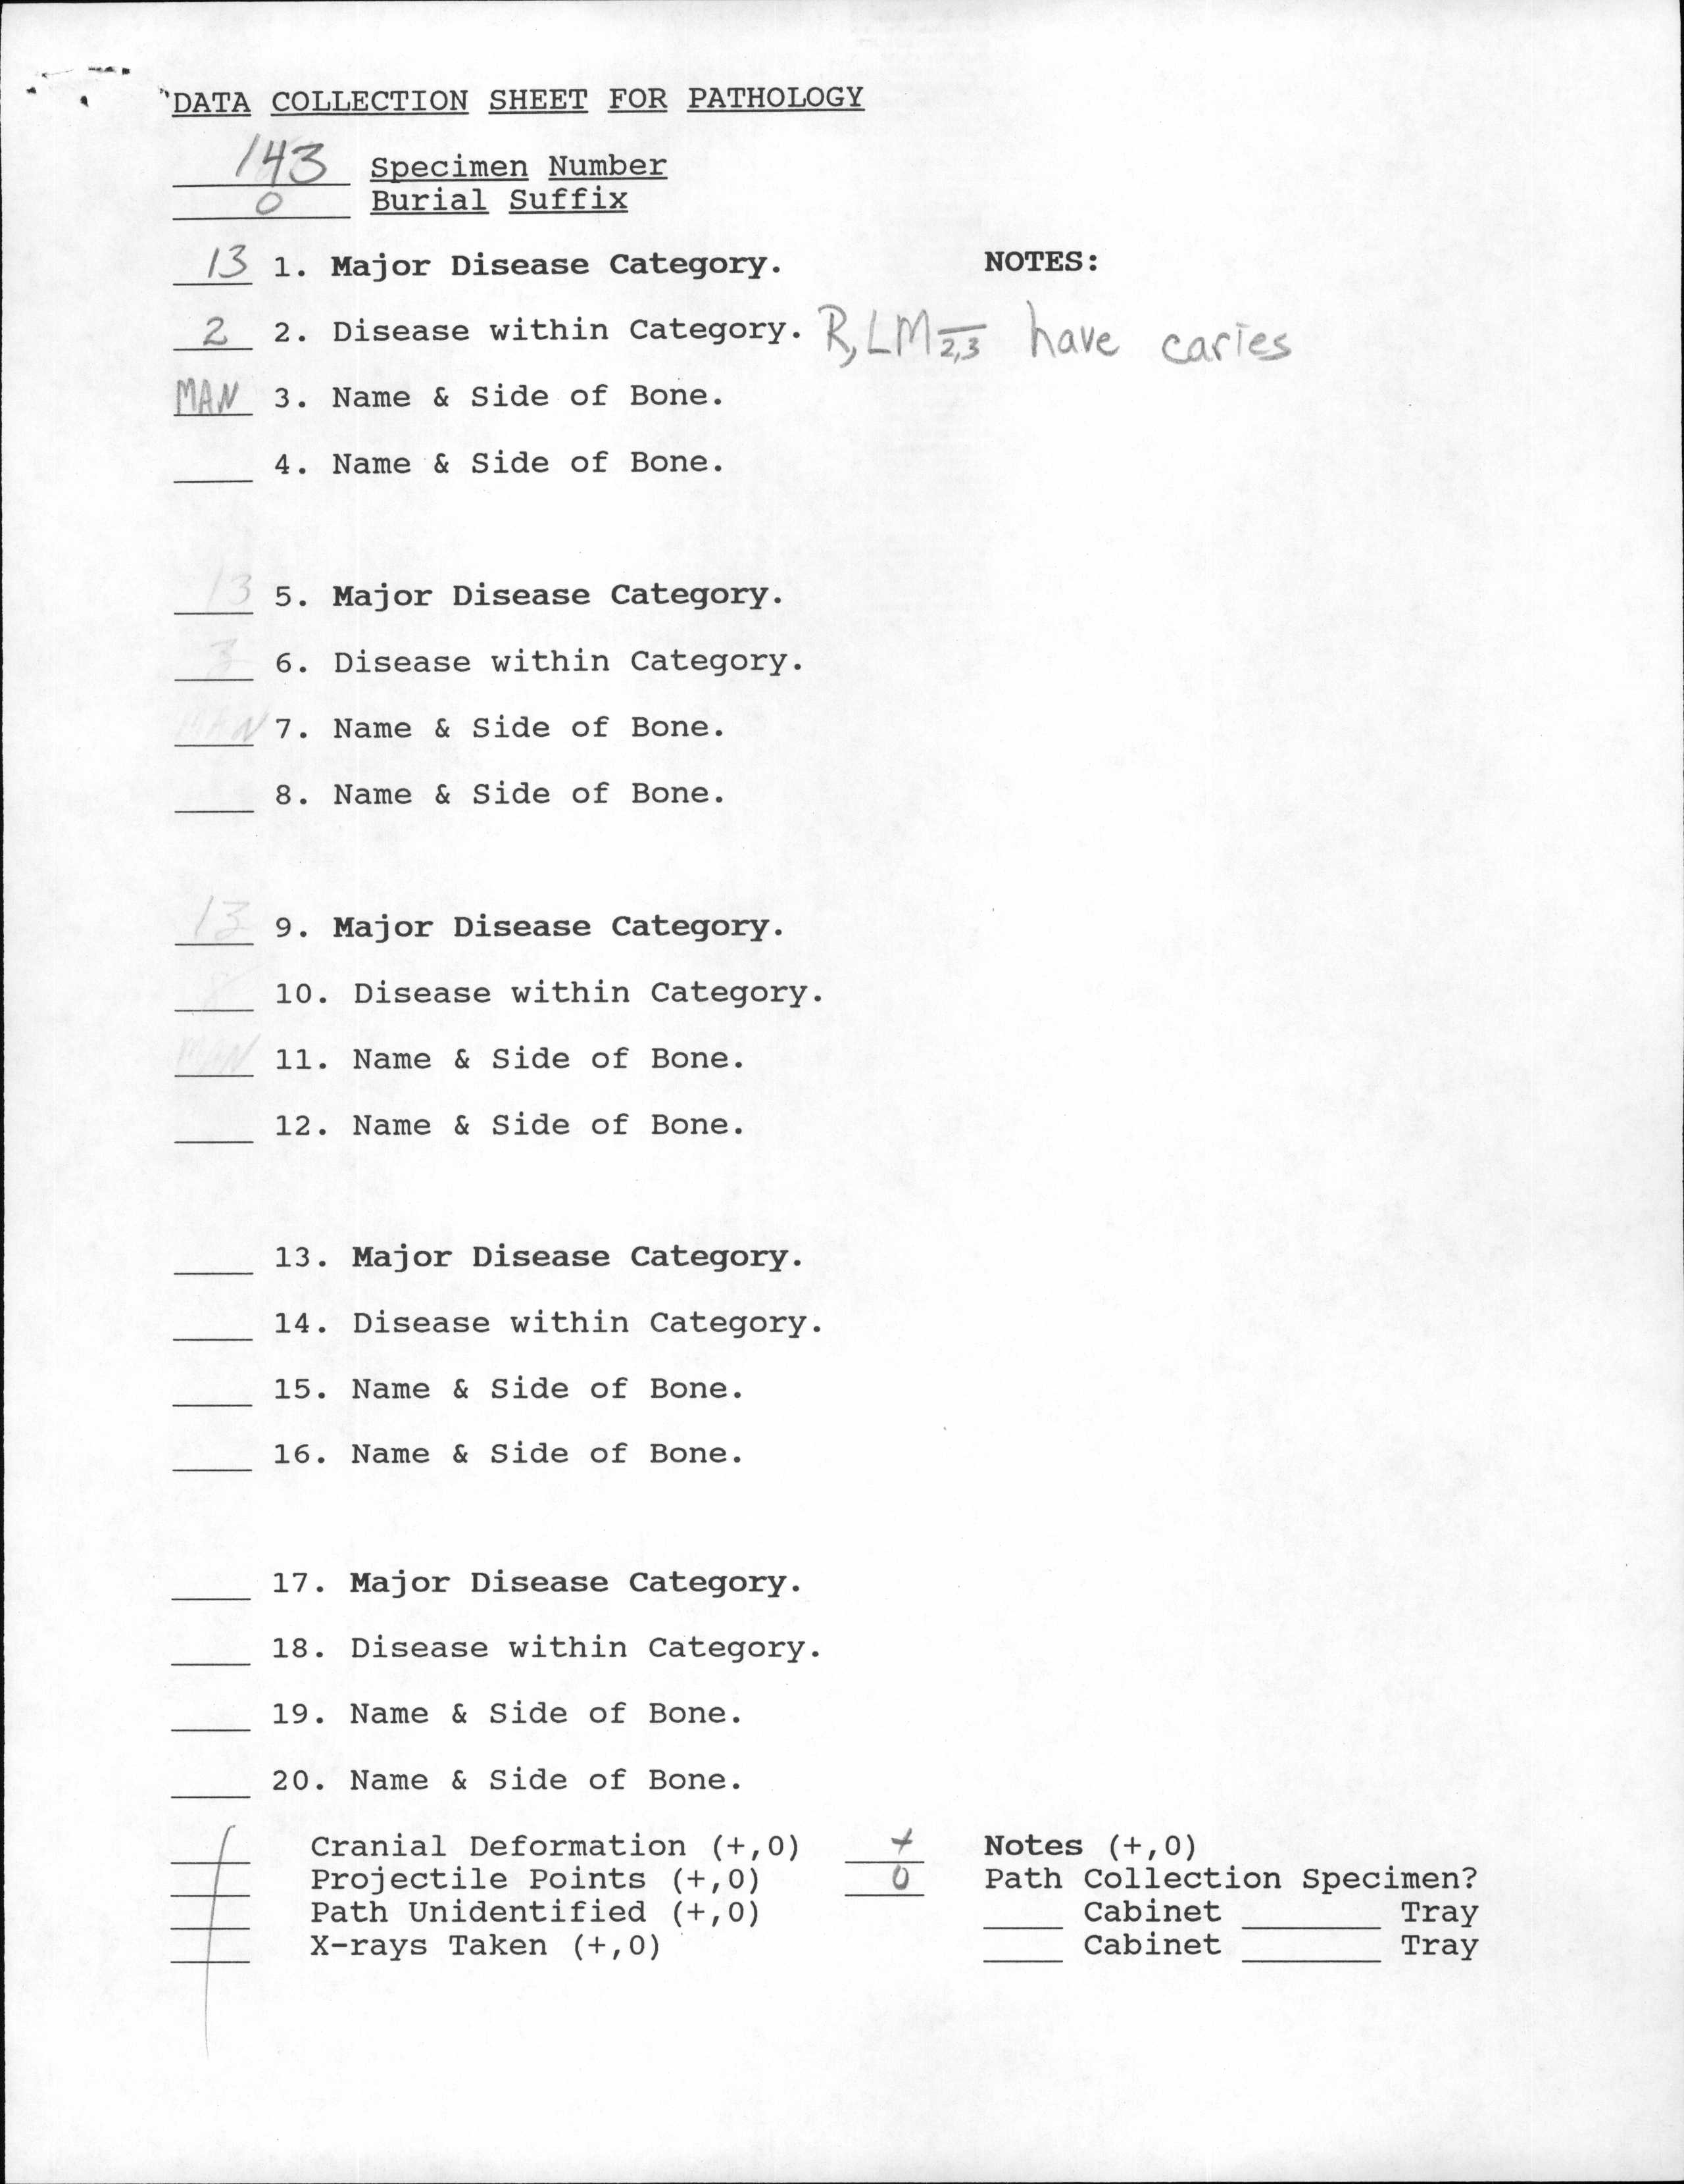 DATA COLLECTION SHEET FOR PATHOLOGY
143 Specimen Number
0 Burial Suffix
13 1. Major Disease Category. NOTES:
2 2. Disease within Category. R, LM 2,3 have caries
MAN 3. Name & Side of Bone.
4. Name & Side of Bone.
13 5. Major Disease Category.
3 6. Disease within Category.
MAN 7. Name & Side of Bone.
8. Name & Side of Bone.
13 9. Major Disease Category.
8 10. Disease within Category.
MAN 11. Name & Side of Bone.
12. Name & Side of Bone.
13. Major Disease Category.
14. Disease within Category.
15. Name & Side of Bone.
16. Name & Side of Bone.
17. Major Disease Category.
18. Disease within Category.
19. Name & Side of Bone.
20. Name & Side of Bone.
Cranial Deformation (+,0) + Notes (+,0)
Projectile Points (+,0) 0 Path Collection Specimen?
Path Unidentified (+,0) Cabinet Tray
X-rays Taken (+,0) Cabinet Tray